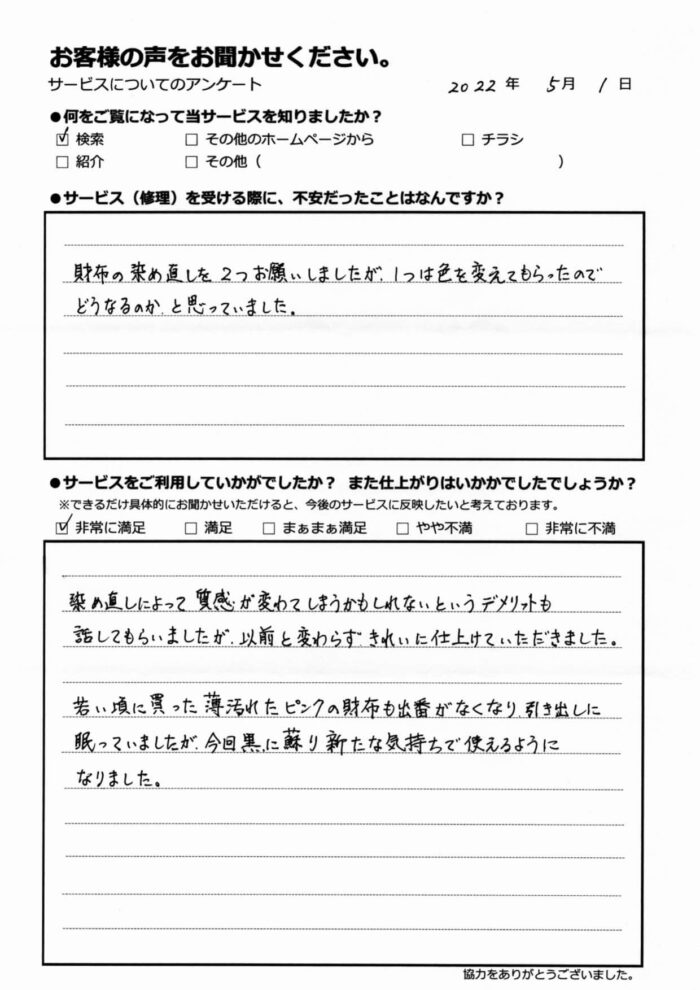 お客様の声をお聞かせください。
サービスについてのアンケート 2022年 5月 1日
●何をご覧になって当サービスを知りましたか？
☑ 検索 □ その他のホームページから □ チラシ
□ 紹介 □ その他（ ）
●サービス（修理）を受ける際に、不安だったことはなんですか？
財布の染め直しを2つお願いしましたが、1つは色を変えてもらったので
どうなるのか、と思っていました。
●サービスをご利用していかがでしたか？ また仕上がりはいかかでしたでしょうか？
※できるだけ具体的にお聞かせいただけると、今後のサービスに反映したいと考えております。
☑ 非常に満足 □ 満足 □ まぁまぁ満足 □ やや不満 □ 非常に不満
染め直しによって質感が変わてしまうかもしれないというデメリットも
話してもらいましたが、以前と変わらずきれいに仕上げていただきました。
若い頃に買った薄汚れたピンクの財布も出番がなくなり、引き出しに
眠っていましたが、今回黒に蘇り新たな気持ちで使えるように
なりました。
協力をありがとうございました。